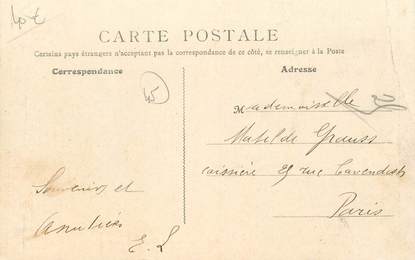 40 €
CARTE POSTALE
Certains pays étrangers n'acceptant pas la correspondance de ce côté, se renseigner à la Poste
Correspondance
Adresse
45
Mademoiselle
Matilde Grauss
caissière rue Cavendish
Paris
Souvenirs et
Amitiés
E. L